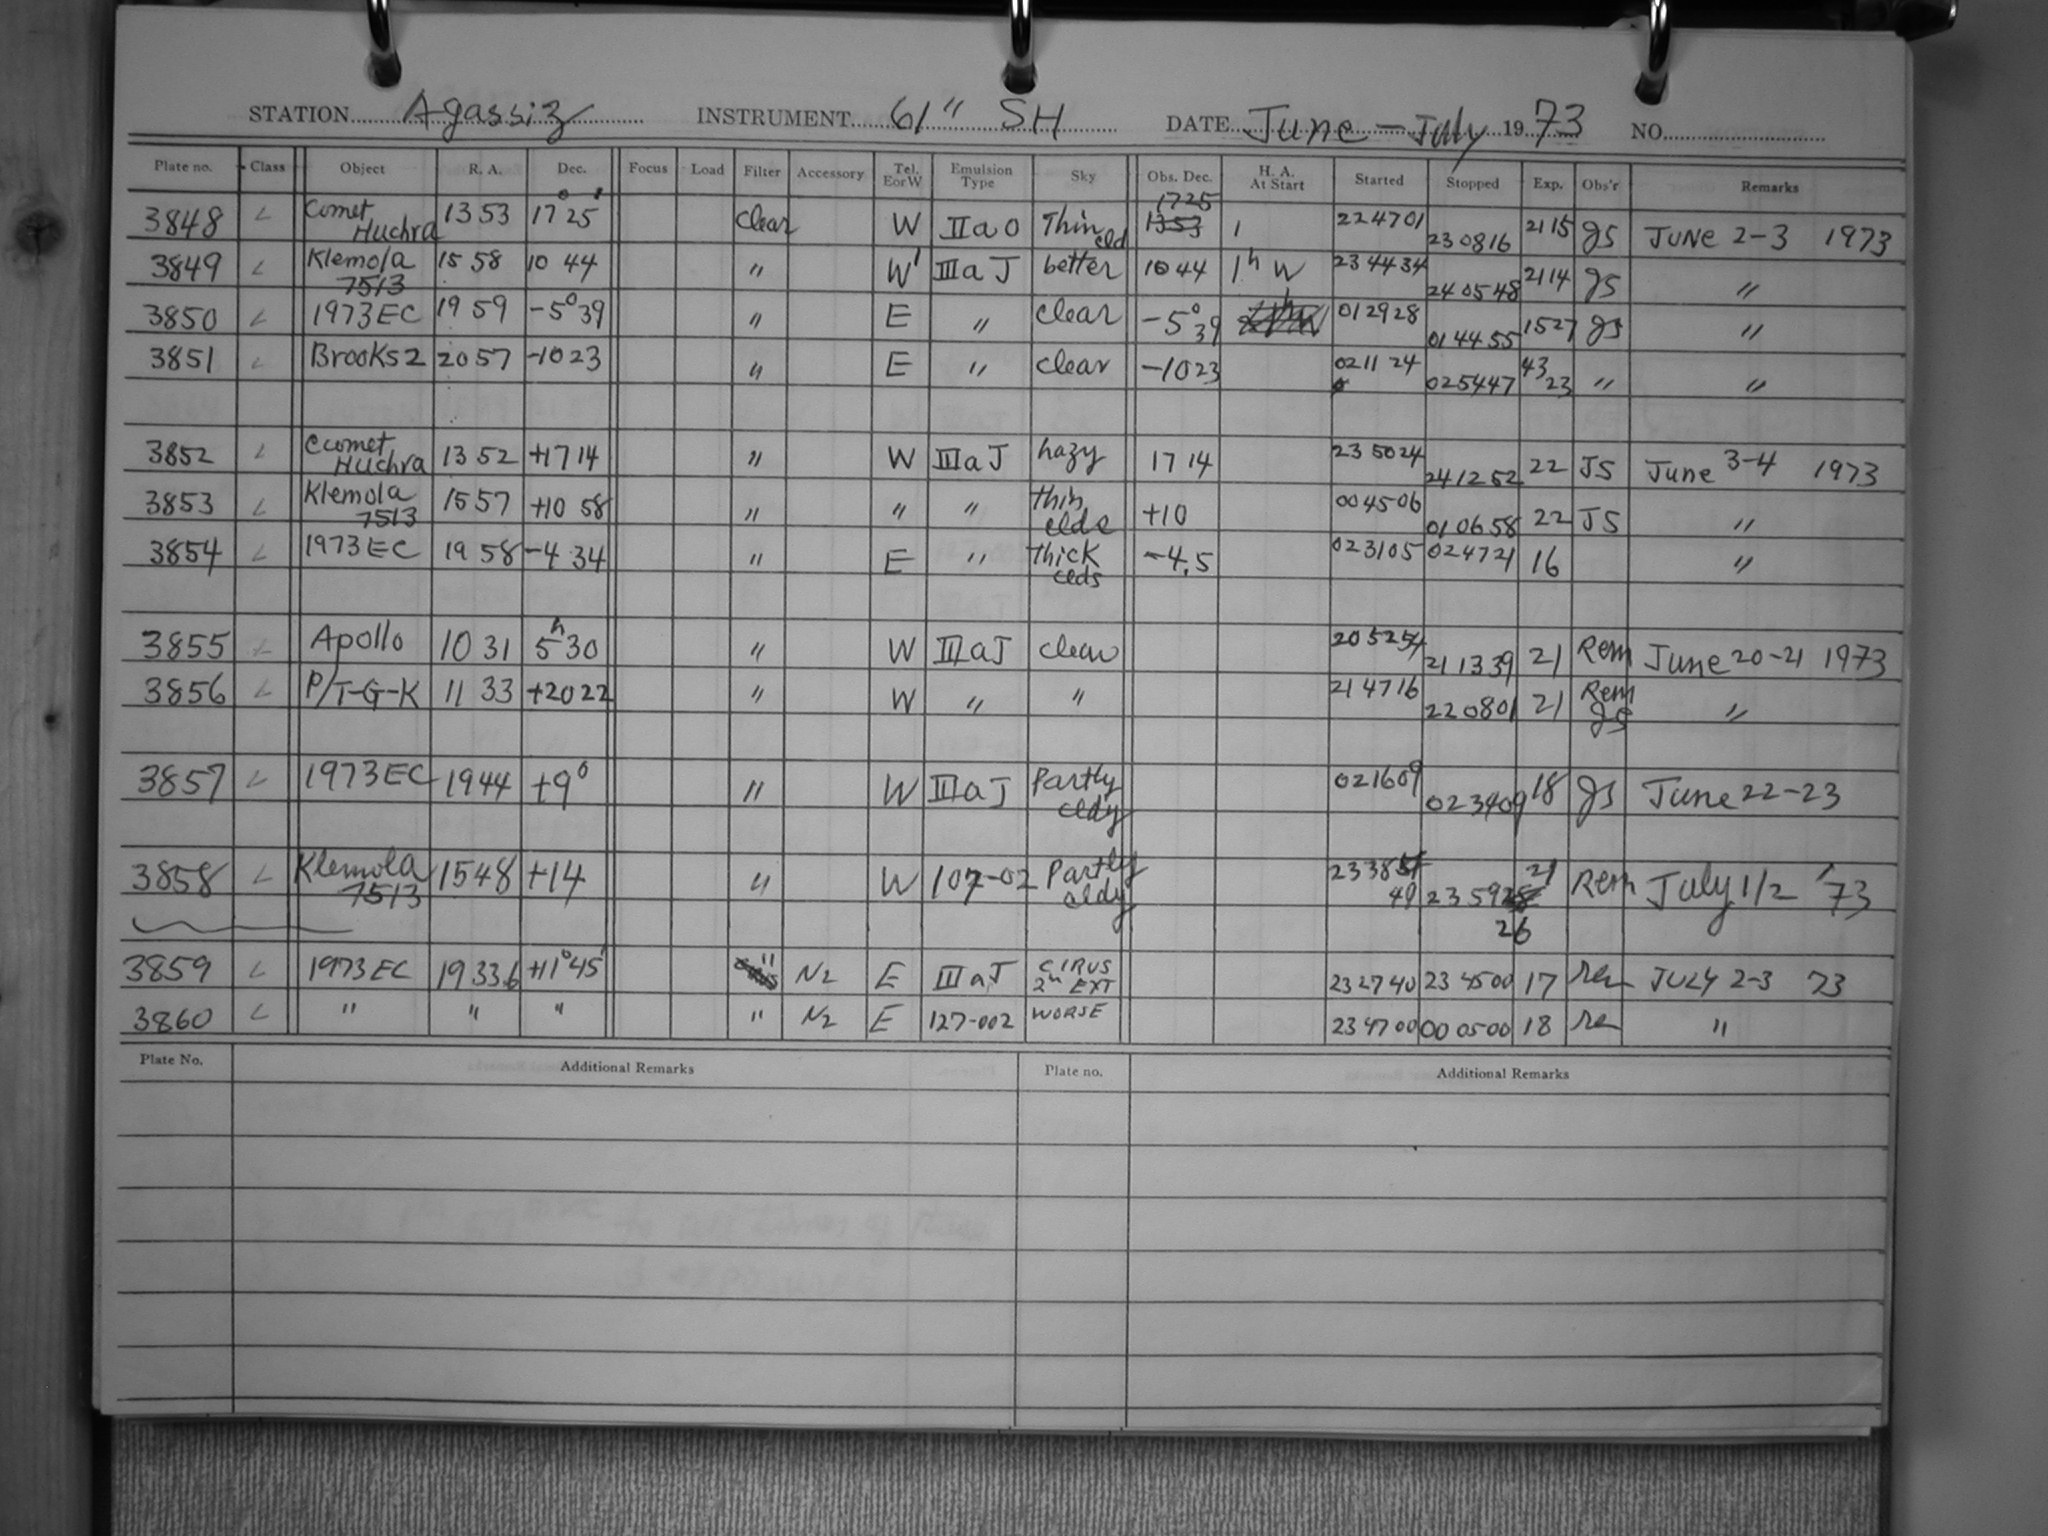 STATION Agassiz INSTRUMENT 61" SH DATE June-July 1973 NO.
Plate no. Class Object R. A. Dec. Focus Load Filter Accessory Tel. E or W Emulsion Type Sky Obs. Dec. H. A. At Start Started Stopped Exp. Obs'r Remarks
3848 L Comet Huchra 13 53 17° 25' Clear W IIaO Thin cld 1725 1353 1 224701 230816 2115 JS JUNE 2-3 1973
3849 L Klemola 7513 15 58 10 44 " W IIIaJ better 1044 1h W 234434 240548 2114 JS "
3850 L 1973EC 19 59 -5°39 " E " clear -5°39 012928 014455 1527 JS "
3851 L Brooks2 20 57 -10 23 " E " clear -1023 021124 025447 43 23 " "
3852 L Comet Huchra 13 52 +17 14 " W IIIaJ hazy 17 14 235024 241252 22 JS June 3-4 1973
3853 L Klemola 7513 15 57 +10 58 " " " thin clds +10 004506 010658 22 JS "
3854 L 1973EC 19 58 -4 34 " E " thick clds -4.5 023105 024721 16 "
3855 L Apollo 10 31 5h30 " W IIIaJ clear 205254 211339 21 Rem June 20-21 1973
3856 L P/T-G-K 11 33 +2022 " W " " 214716 220801 21 Rem JS "
3857 L 1973EC 1944 +9° " W IIIaJ Partly cldy 021609 023409 18 JS June 22-23
3858 L Klemola 7513 1548 +14 " W 107-02 Partly cldy 2338 49 235928 26 21 Rem July 1/2 '73
3859 L 1973EC 19 33.6 +11°45' " N2 E IIIaJ CIRUS 2m EXT 232740 234500 17 rem JULY 2-3 73
3860 L " " " " N2 E 127-002 WORSE 234700 000500 18 rem "
Plate No. Additional Remarks Plate no. Additional Remarks